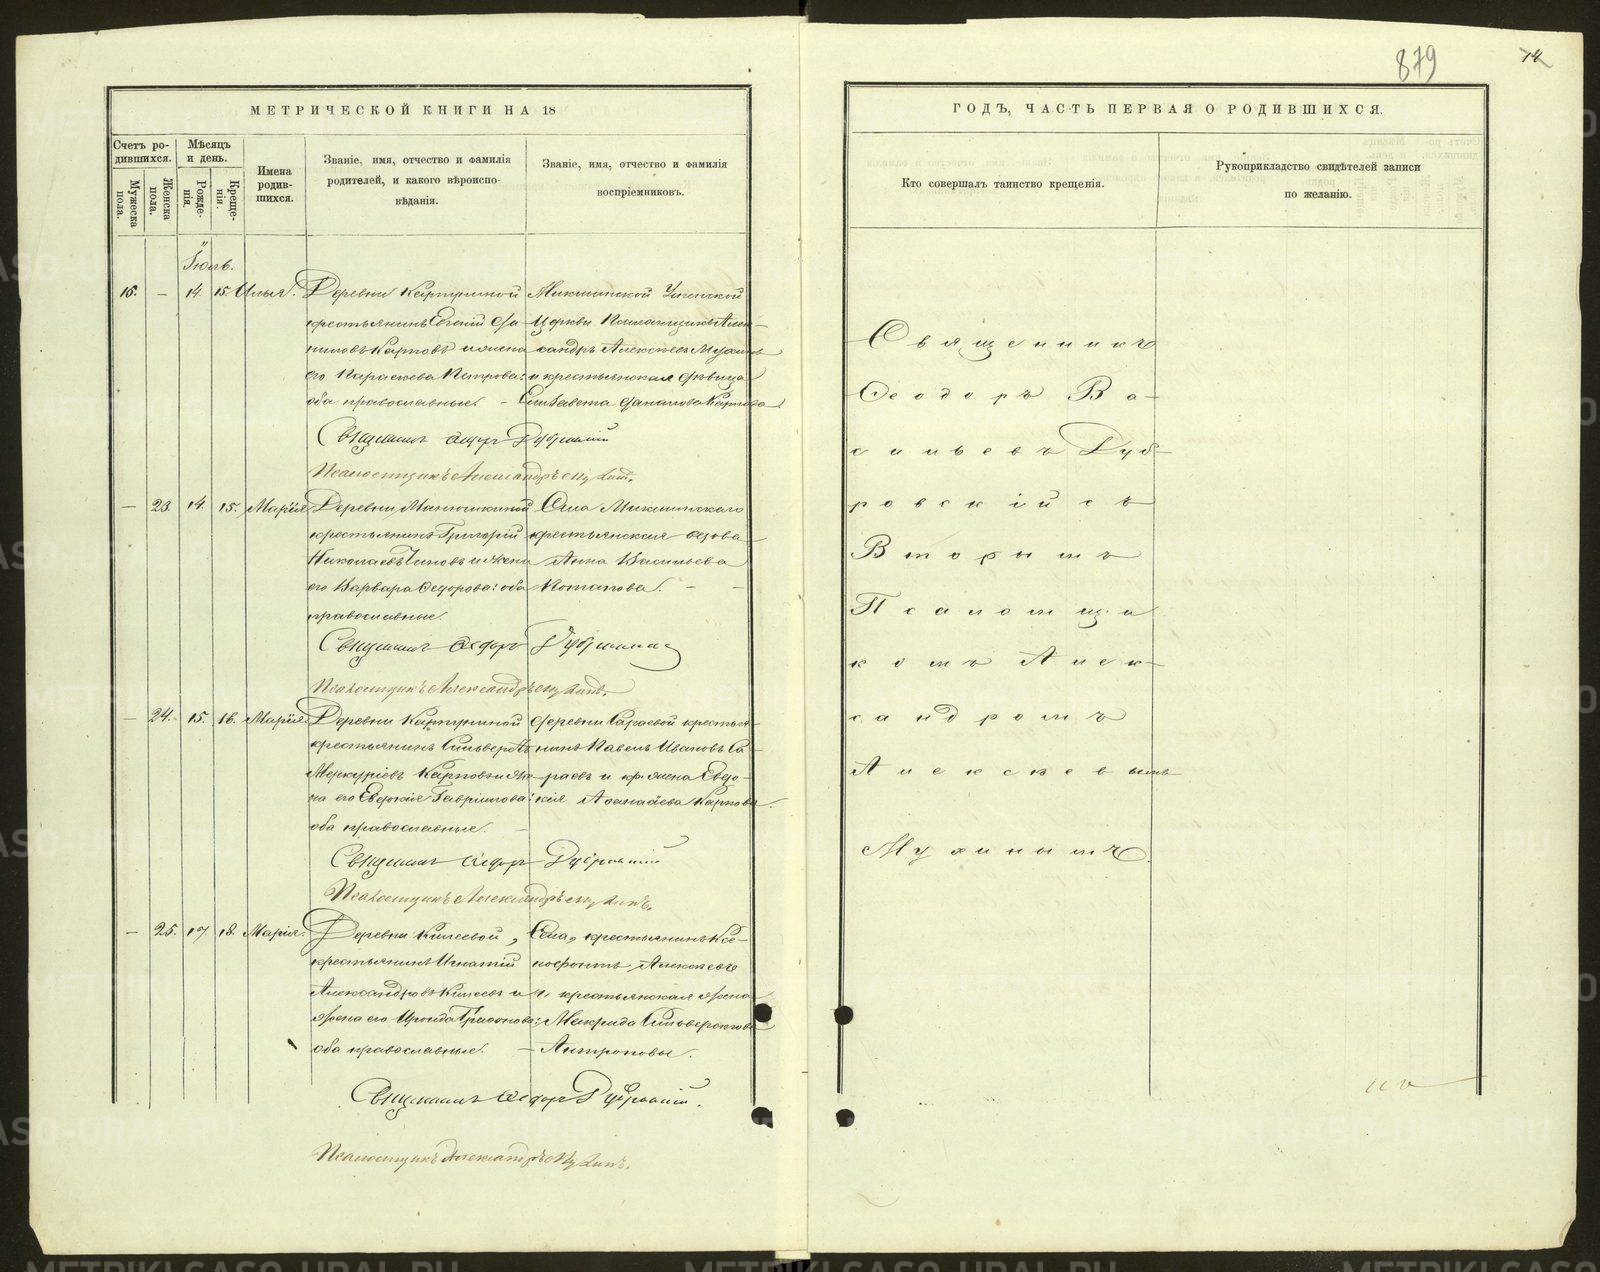 879
14
МЕТРИЧЕСКОЙ КНИГИ НА 18
Счетъ ро-
дившихся.
Мужеска
пола.
Женска
пола.
Мѣсяцъ
и день.
Рожде-
нія.
Креще-
нія.
Имена
родив-
шихся.
Званіе, имя, отчество и фамилія
родителей, и какого вѣроиспо-
вѣданія.
Званіе, имя, отчество и фамилія
воспріемниковъ.
Іюль.
16. — 14. 15. Илья.
Деревни Карпушиной
крестьянинъ Евгеній Да-
ниловъ Карповъ и жена
его Параскева Петрова:
оба православные. —
Церкви Псаломщикъ Алек-
сандръ Алексѣевъ Мухинъ
и крестьянская дѣвица
Елизавета Данилова Карпова
Священникъ Ѳеодоръ Дубровскій
Псаломщикъ Александръ Мухинъ.
— 23. 14. 15. Марія
Деревни
крестьянинъ Григорій
Николаевъ и жена
его Варвара Ѳедорова: оба
православные.
Села
крестьянская вдова
Анна Васильева
Потапова. — —
Священникъ Ѳеодоръ Дубровскій
Псаломщикъ Александръ Мухинъ.
— 24. 15. 16. Марія
Деревни Карпушиной
крестьянинъ
Меркуріевъ Карповъ и же-
на его Евдокія Гавріилова:
оба православные. —
деревни Сараевой крестья-
нинъ Павелъ Ивановъ Са-
раевъ и кр. жена Евдо-
кія Карпова.
Священникъ Ѳеодоръ Дубровскій
Псаломщикъ Александръ Мухинъ.
— 25. 17. 18. Марія.
Деревни Кичеевой,
крестьянинъ Игнатій
Александровъ Кичеевъ и
жена его Ираида
оба православные. —
Села, крестьянинъ Ксе-
нофонтъ Алексѣевъ
и крестьянская жена
Макрида
Антроповы.
Священникъ Ѳеодоръ Дубровскій.
Псаломщикъ Александръ Мухинъ.
ГОДЪ, ЧАСТЬ ПЕРВАЯ О РОДИВШИХСЯ.
Кто совершалъ таинство крещенія.
Рукоприкладство свидѣтелей записи
по желанію.
Священникъ
Ѳеодоръ Ва-
сильевъ Дуб-
ровскій съ
Вторымъ
Псаломщи
комъ Алек-
сандромъ
Алексѣевымъ
Мухинымъ.
METRIKI.GASO-URAL.RU